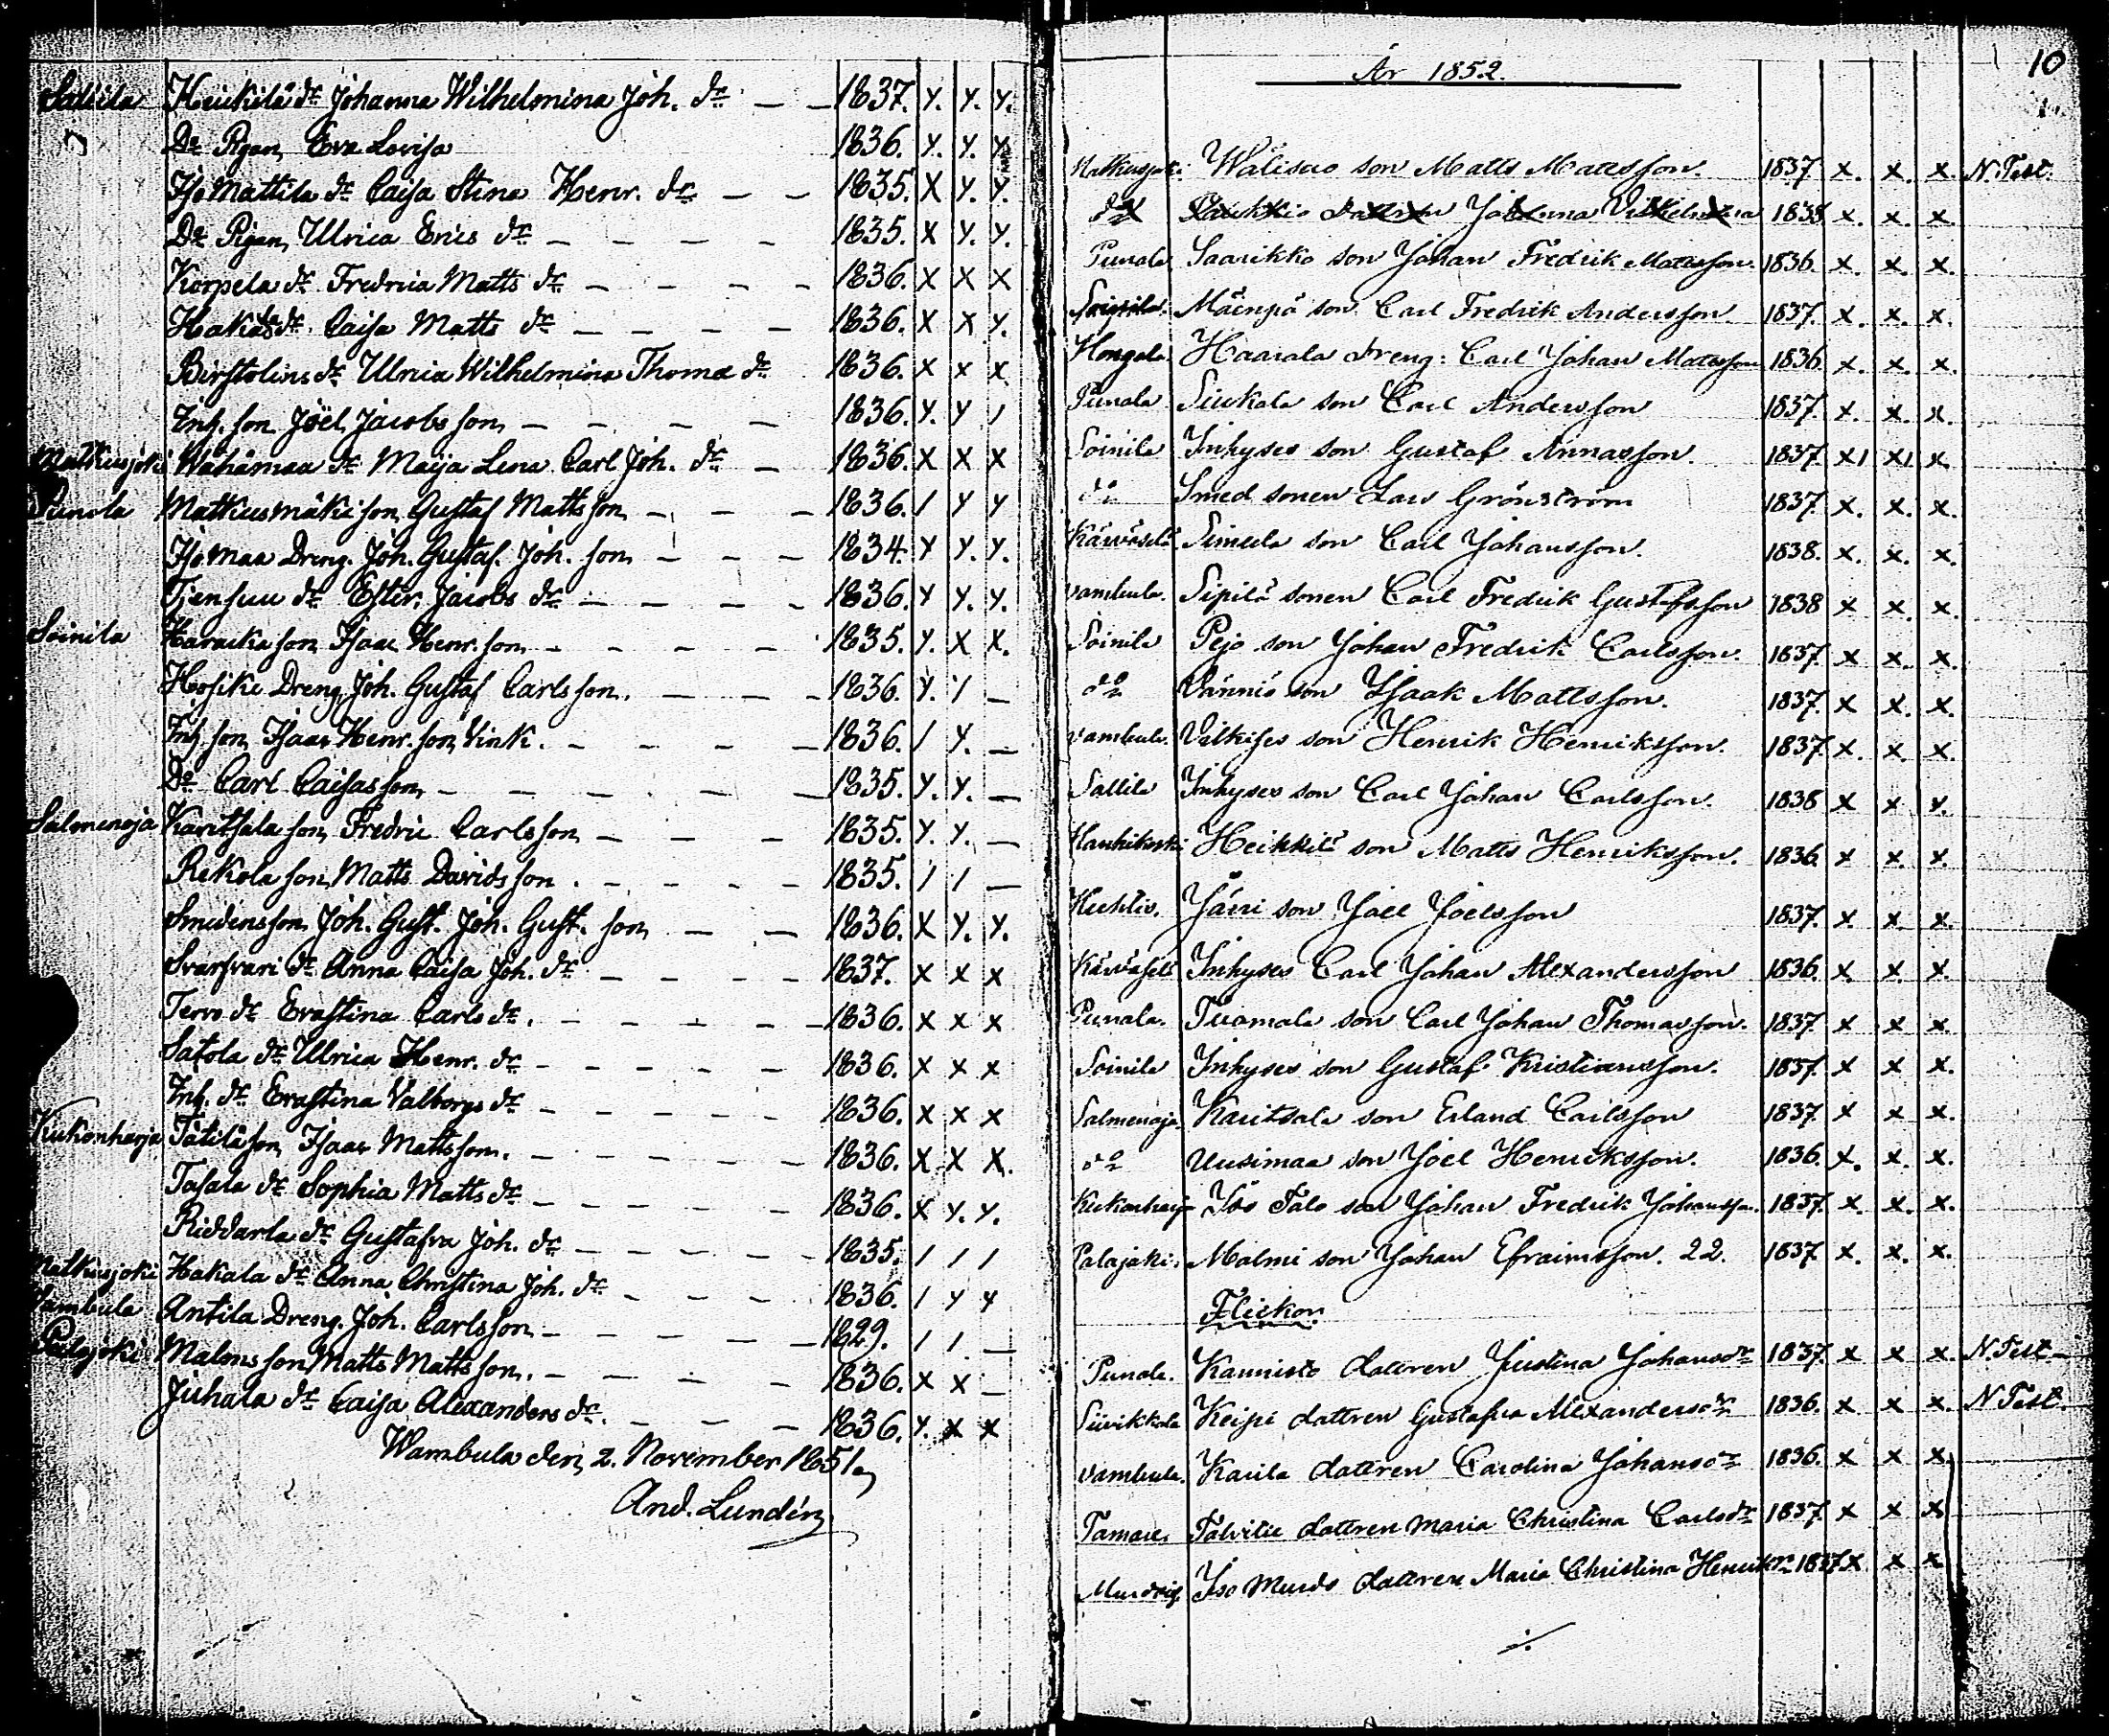 Sallila Heickilä dr Johanna Wilhelmina Joh. dr — — 1837. y. y. y.
Do Pigan, Eva Lovisa 1836. y. y. y.
Iso Mattila dr Caisa Stina Henr. dr — — 1835. x y. y.
Do Pigan, Ulrica Erics dr — — — — 1835. x y. y.
Korpela dr Fredrica Matts dr — — — — 1836. x x x
Hakala dr Caisa Matts dr — — — — 1836. x x y.
Birstolins dr Ulrica Wilhelmina Thomæ dr 1836. x x x
Inh. son Joël Jacobsson — — — — 1836. y. y 1
Matkusjoki Wähämaa dr Maija Lena Carl Joh. dr — 1836. x x x
Punola Matkusmäki son Gustaf Mattsson — — — 1836. 1 y y
Isomaa Dreng. Joh. Gustaf. Joh. son — — — 1834. y y. y.
Tjensuu dr Ester Jacobs dr — — — — 1836. y y. y.
Soinila Haraika son Isaac Henr. son — — — — 1835. y. x x.
Hosike Dreng Joh. Gustaf Carlsson. — — — 1836. y. 1 —
Inh. son Isaac Henr. son Vink. — — — — — 1836. 1 y. —
Do Carl Caisasson — — — — — 1835. y. y. —
Salmenoja Karitsala son Fredric Carlsson — — — 1835. y. y. —
Rekola son Matts Davidsson. — — — — 1835. 1 1 —
Smedensson Joh. Gust. Joh. Gust. son — — 1836. x y. y.
Svarfvari dr Anna Caisa Joh. dr — — — — 1837. x x x
Tervo dr Evastina Carls dr. — — — — — 1836. x x x
Satola dr Ulrica Henr. dr — — — — — 1836. x x x
Inh. dr Evastina Valborgs dr — — — — — 1836. x x x
Kukonharja Tätilä son Isaac Mattsson. — — — — — 1836. x x x.
Tasala dr Sophia Matts dr — — — — — 1836. x y. y.
Riddarla dr Gustafva Joh. dr — — — — — 1835. 1 1 1
Matkusjoki Hakala dr Anna Christina Joh. dr — — — 1836. 1 y y
Vambula Antila Dreng. Joh. Carlsson — — — — 1829. 1 1. —
Palojoki Malms son Matts Mattsson. — — — — 1836. x x —
Juhala dr Caisa Alexanders dr. — — — 1836. y. x x
Wambula den 2. November 1851.
And. Lundén
10
År 1852.
Matkusjoki. Wälisuo son Matts Mattsson. 1837 x. x. x. N. Test.
do dattren Johanna Vilhelmina 1838 x. x. x.
Punola Saarikko son Johan Fredrik Mattsson. 1836. x. x. x.
Soinila. Mäenpä son Carl Fredrik Andersson 1837. x. x. x.
Hongola. Haarala dreng: Carl Johan Mattsson 1836 x. x. x.
Punola Siukola son Carl Andersson 1837. x. x. x.
Soinila Inhyses son Gustaf Annasson. 1837. x1 x1 x.
do Smed sonen Lars Grönström 1837. x. x. x.
Kärväselä Simula son Carl Johansson. 1838. x. x. x.
Vambula. Sipilä sonen Carl Fredrik Gustafsson 1838 x x. x.
Soinila Pejo son Johan Fredrik Carlsson. 1837. x x. x.
do Vännis son Isaak Mattsson. 1837. x x. x.
Vambula. Välkises son Henrik Henriksson. 1837. x. x. x
Sallila Inhyses son Carl Johan Carlsson. 1838 x x x.
Hanhikoski Heikkilä son Matts Henriksson. 1836 x x. x.
Huhtis. Järri son Joel Joelsson 1837. x. x. x.
Kärväselä Inhyses Carl Johan Alexandersson 1836. x. x. x.
Punola. Tuomola son Carl Johan Thomasson. 1837 x x x.
Soinila Inhyses son Gustaf Kristiansson. 1837. x x x.
Salmenoja Karitsala son Erland Carlsson 1837 x x x.
do Uusimaa son Joel Henriksson. 1836. x. x. x.
Kukonharja Iso Talo son Johan Fredrik Johansson. 1837. x. x. x.
Palojoki. Malmi son Johan Efraimsson. 22. 1837 x. x. x.
Flickor
Punola. Kannisto dattren Justina Johansdr 1837. x x x. N. Test
Suvikkala Keipi dattren Gustafva Alexandersdr 1836. x x x. N. Test.
Vambula. Karila dattren Carolina Johansdr 1836. x x x.
Tamare. Talvitie dattren Maria Christina Carlsdr 1837 x x x
Iso Murdo dattren Maria Christina Henriksdr 1837. x x x